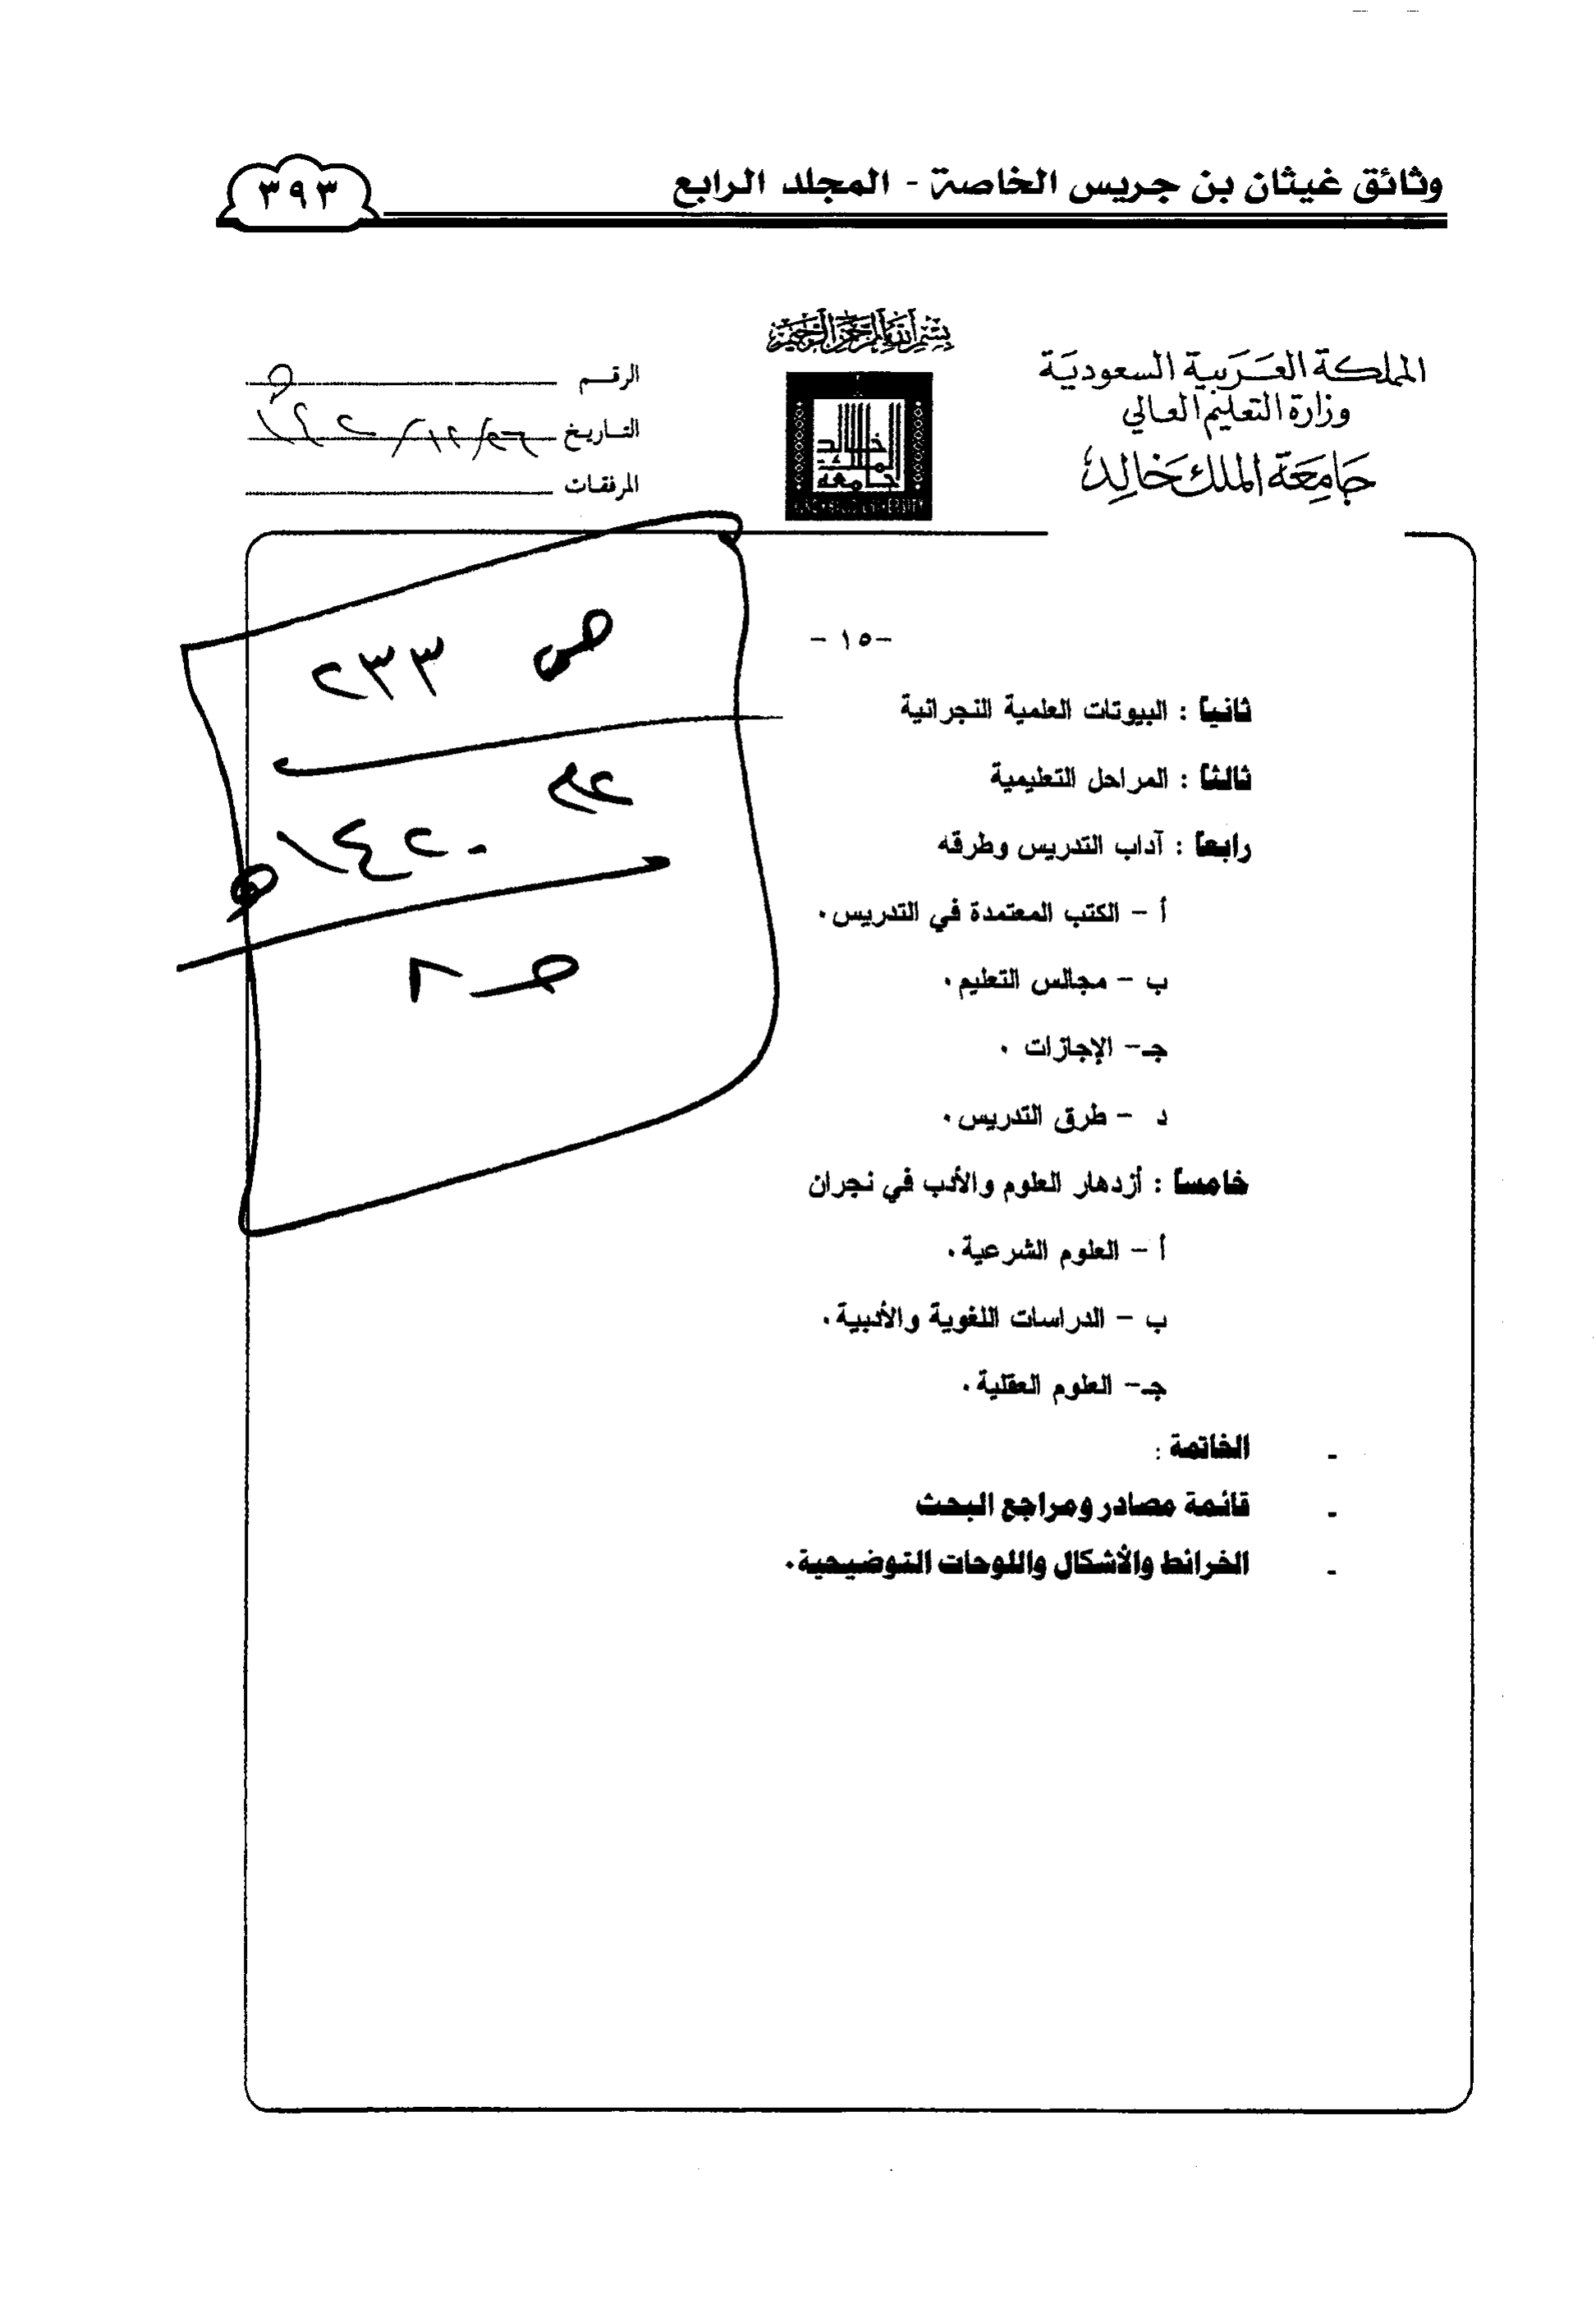 وثائق غيثان بن جريس الخاصة - المجلد الرابع
٣٩٣
بسم الله الرحمن الرحيم
المملكة العربية السعودية
وزارة التعليم العالي
جامعة الملك خالد
جامعة الملك خالد
KING KHALID UNIVERSITY
الرقم
التاريخ
المرفقات
-١٥-
ثانياً : البيوتات العلمية النجرانية
ثالثاً : المراحل التعليمية
رابعاً : آداب التدريس وطرقه
أ - الكتب المعتمدة في التدريس.
ب - مجالس التعليم.
جـ- الإجازات .
د - طرق التدريس.
خامساً : أزدهار العلوم والأدب في نجران
أ - العلوم الشرعية.
ب - الدراسات اللغوية والأدبية.
جـ- العلوم العقلية.
- الخاتمة :
- قائمة مصادر ومراجع البحث
- الخرائط والأشكال واللوحات التوضيحية.
ص ٢٣٣
١٤٢٠هـ
ص ٨